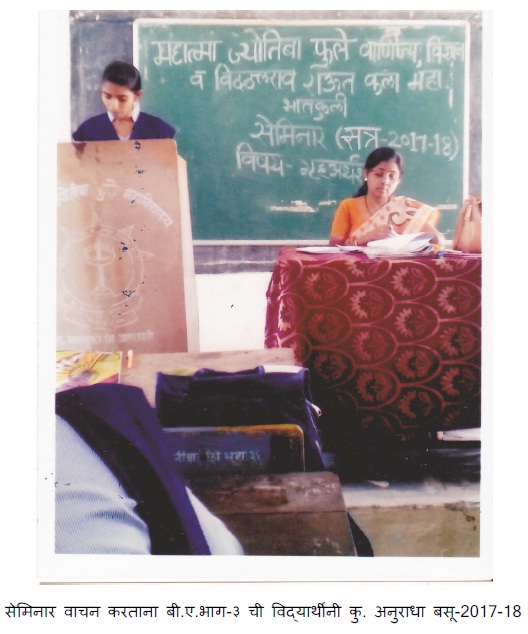 महात्मा ज्योतिबा फुले वाणिज्य, विज्ञान
व विठ्ठलराव राऊत कला महा.
भातकुली
सेमिनार (सत्र-2017-18)
विषय- गृहअर्थश
सेमिनार वाचन करताना बी.ए.भाग-३ ची विद्यार्थीनी कु. अनुराधा बसू-2017-18